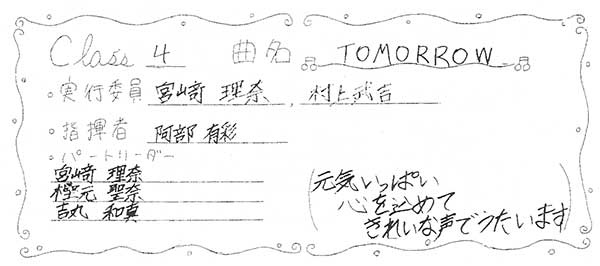 Class 4 曲名 TOMORROW
・実行委員 宮崎 理奈 , 村上 武吉
・指揮者 阿部 有彩
・パートリーダー
宮崎 理奈
樫元 聖奈
吉丸 和真
元気いっぱい
心を込めて
きれいな声でうたいます